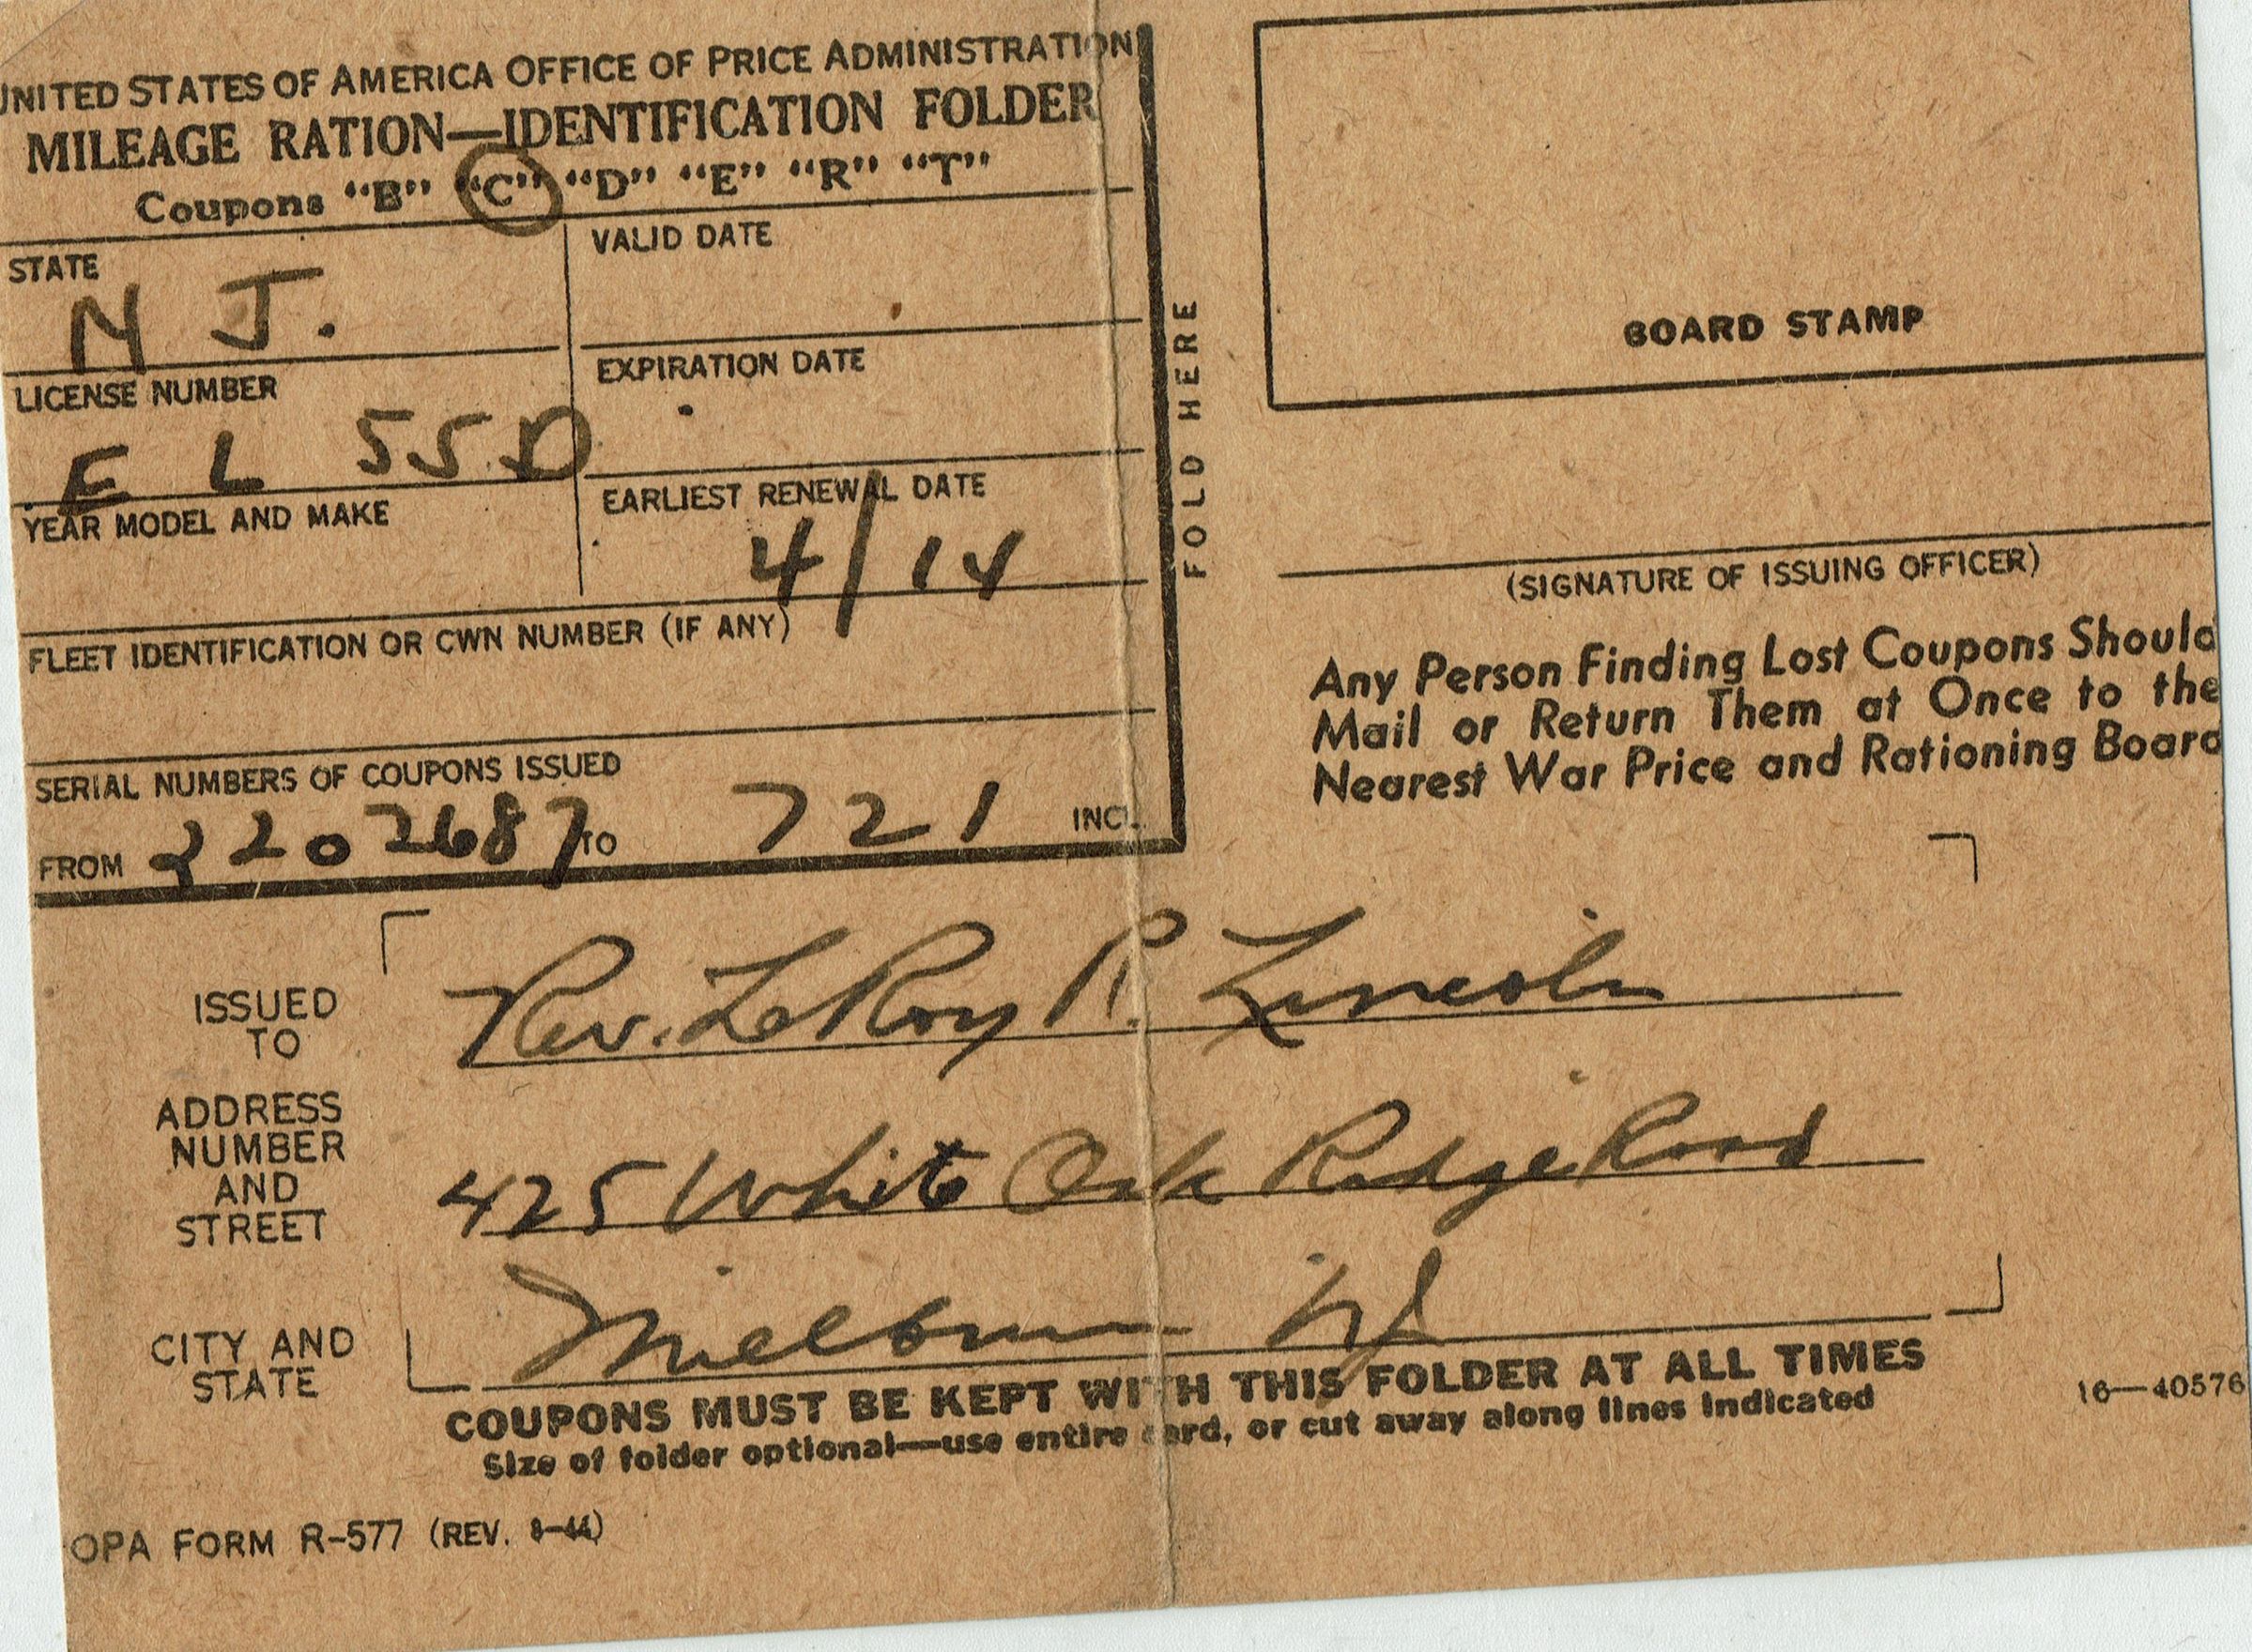 UNITED STATES OF AMERICA OFFICE OF PRICE ADMINISTRATION
MILEAGE RATION—IDENTIFICATION FOLDER
Coupons “B” “C” “D” “E” “R” “T”
STATE
N J.
VALID DATE
LICENSE NUMBER
E L 55 D
EXPIRATION DATE
YEAR MODEL AND MAKE
EARLIEST RENEWAL DATE
4/14
FLEET IDENTIFICATION OR CWN NUMBER (IF ANY)
SERIAL NUMBERS OF COUPONS ISSUED
FROM 2202687 TO 721 INCL.
FOLD HERE
BOARD STAMP
(SIGNATURE OF ISSUING OFFICER)
Any Person Finding Lost Coupons Should
Mail or Return Them at Once to the
Nearest War Price and Rationing Board
ISSUED
TO
Rev. LeRoy R. Lincoln
ADDRESS
NUMBER
AND
STREET
425 White Oak Ridge Road
CITY AND
STATE
Millburn NJ
COUPONS MUST BE KEPT WITH THIS FOLDER AT ALL TIMES
Size of folder optional—use entire card, or cut away along lines indicated
16—40576
OPA FORM R-577 (REV. 8-44)